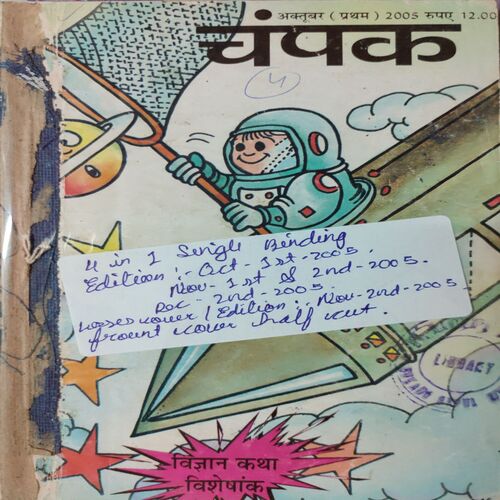 अक्तूबर ( प्रथम ) 2005 रुपए 12.00
चंपक
4
4 in 1 Single Binding
Edition :- Oct - 1st - 2005.
Nov - 1st & 2nd - 2005.
Dec - 2nd - 2005.
/ Edition :. Nov - 2nd - 2005.
frount cover half cut.
LIBRARY
विज्ञान कथा
विशेषांक